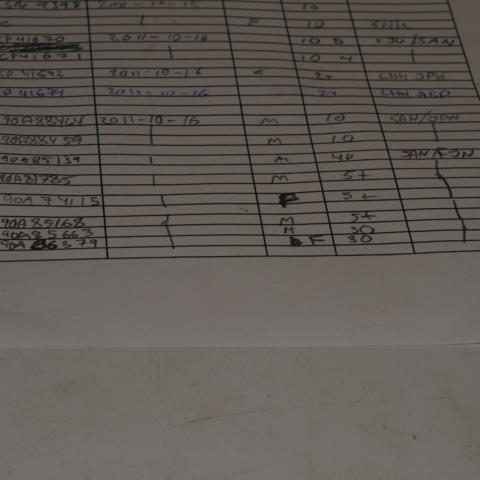 2011-10-15 10
F 10 SNK
CP 41670 2011-10-16 10 5 /SAN
CP41671 10 4
41672 2011-10-16 2+ LHH JPH
CP 41674 2011-10-16 2+ LHH
90A88464 2011-10-16 M 10 SAN/
90A88459 M 10
90A85139 M 4+ SAN/
90A81785 M 5+
90A 74115 F 5+
90A 85168 M 5+
90A 85663 M 30
90A 86379 F 30